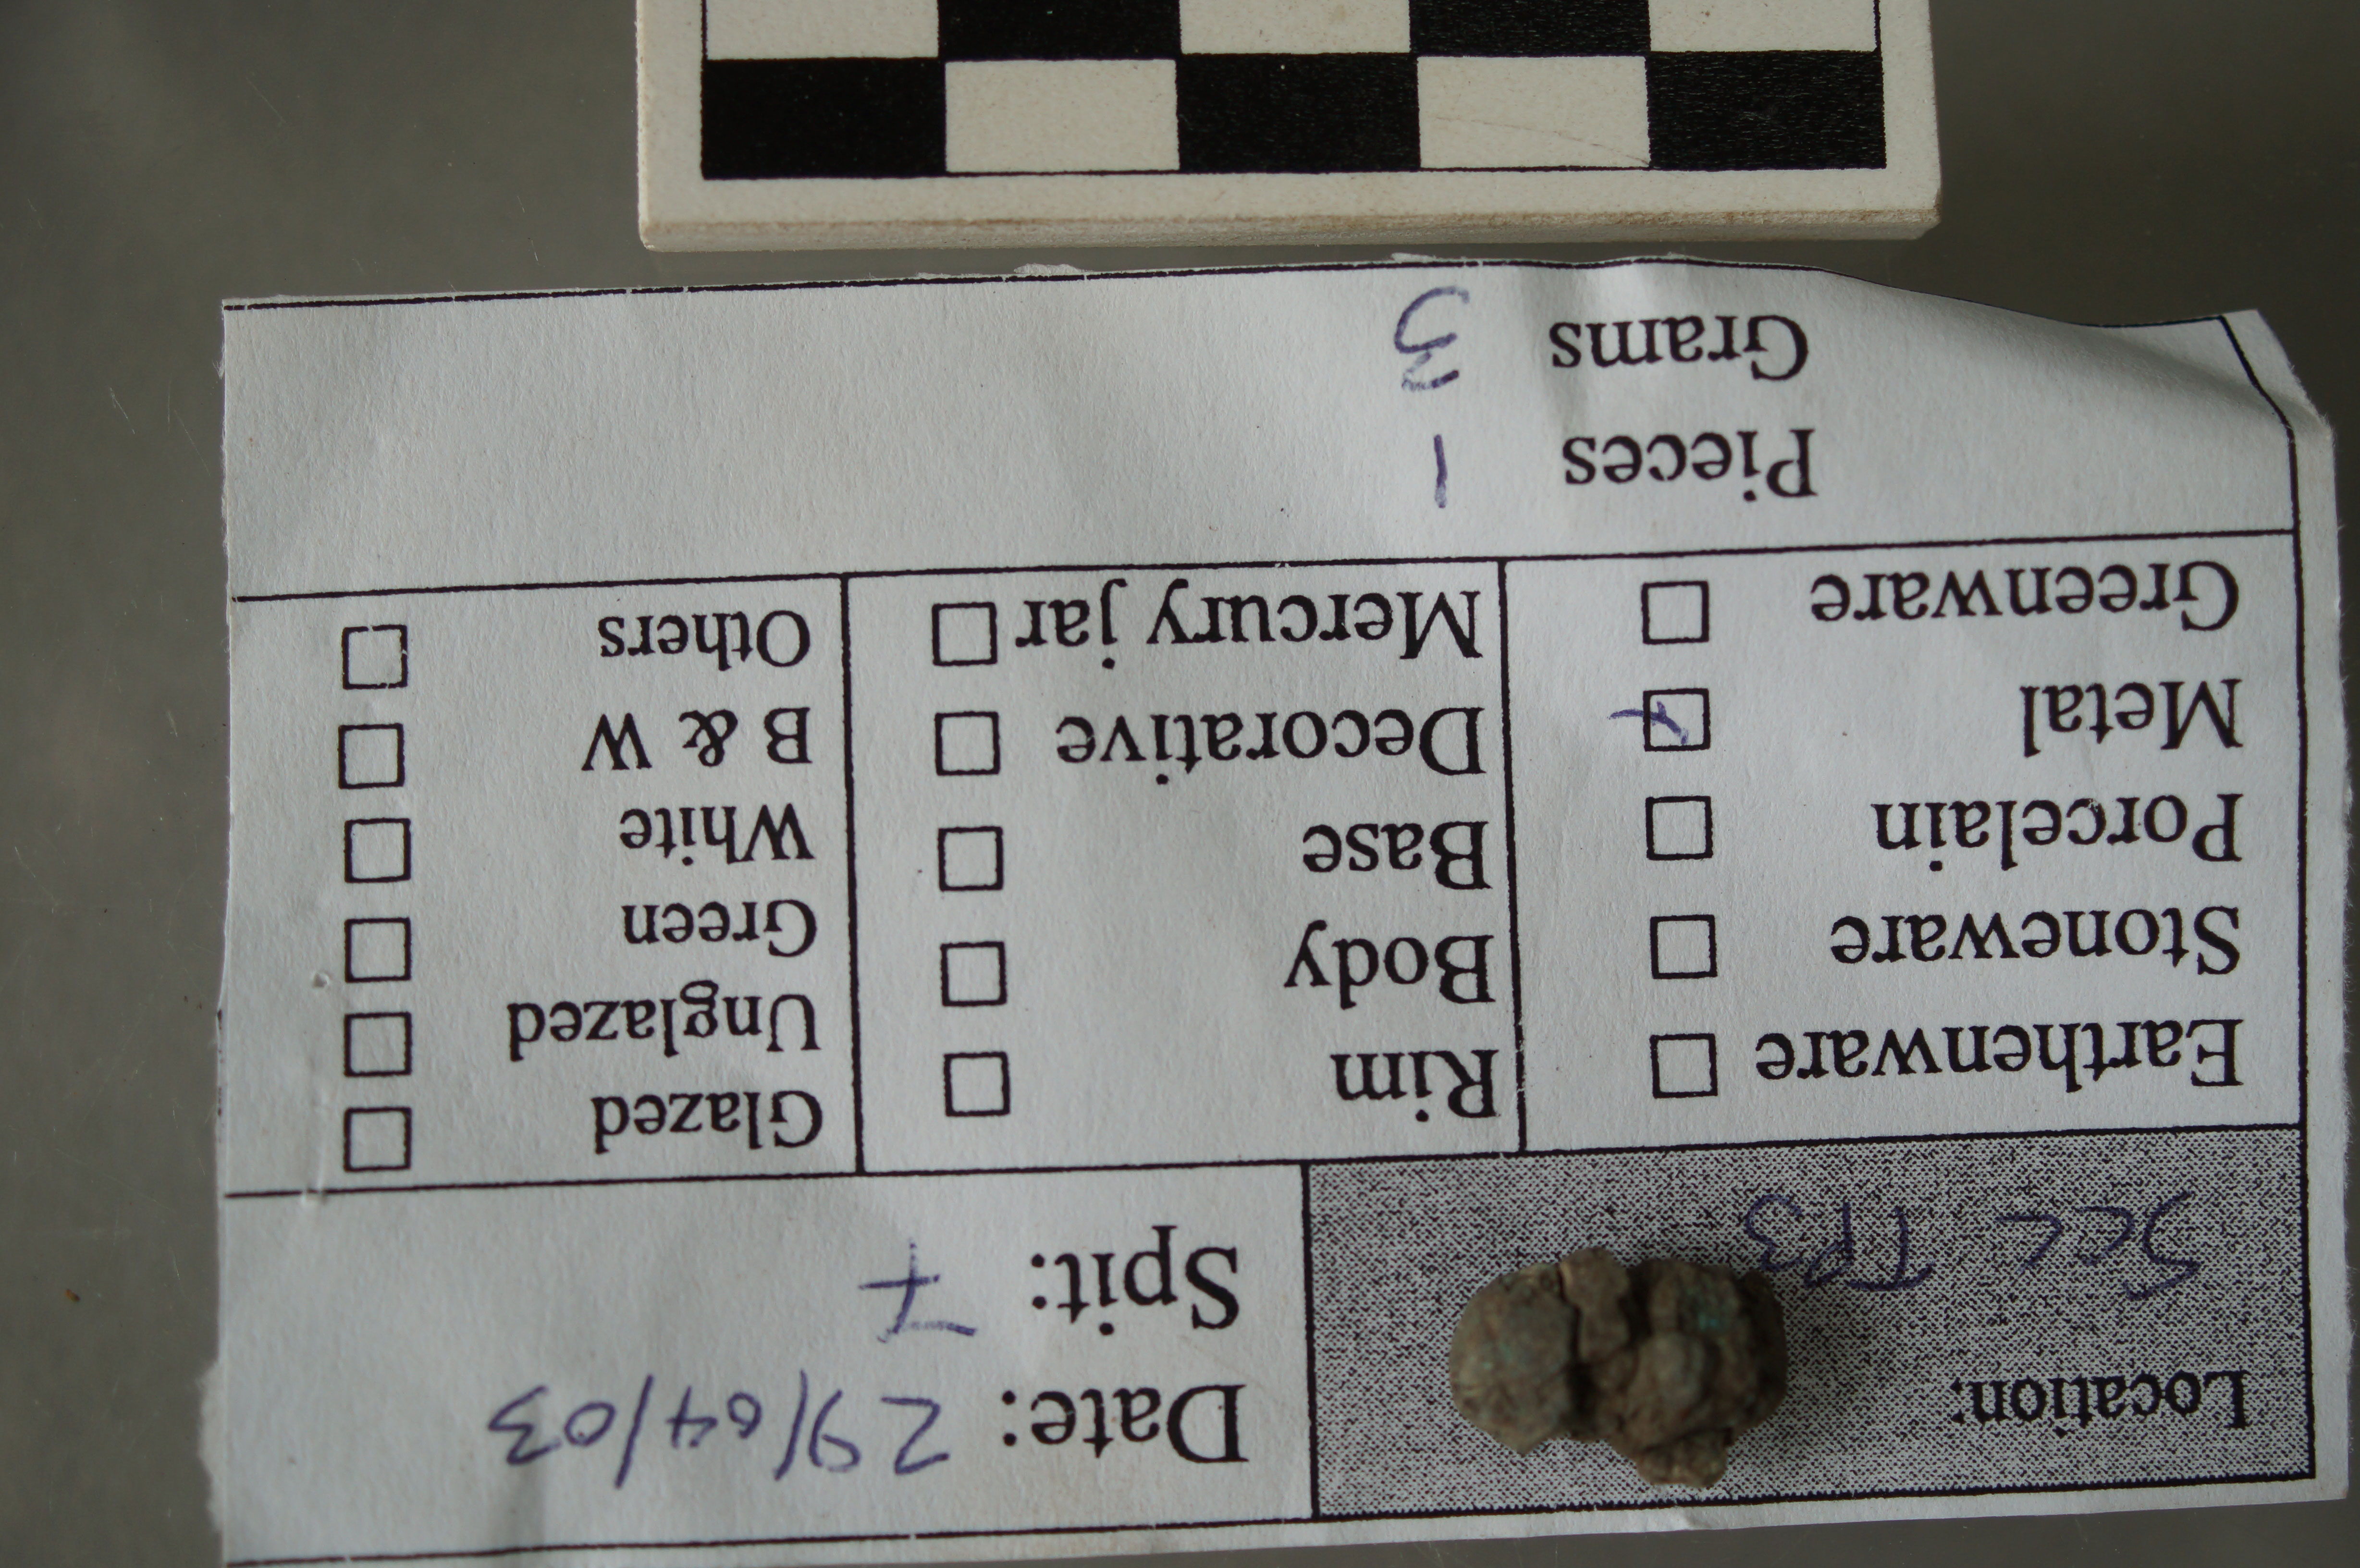 Location:
SCC TP3
Date: 29/04/03
Spit: 7
Earthenware
Stoneware
Porcelain
Metal
Greenware
Rim
Body
Base
Decorative
Mercury jar
Glazed
Unglazed
Green
White
B & W
Others
Pieces 1
Grams 3